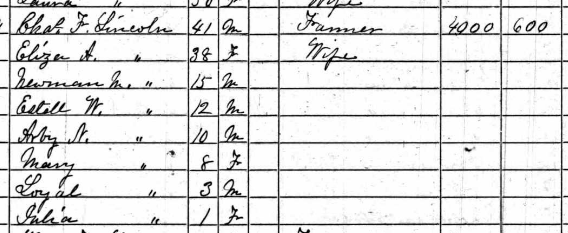 Laura " 30 F Wife
Chas. F. Lincoln 41 M Farmer 4000 600
Eliza A. " 38 F Wife
Newman M. " 15 M
Estell W. " 12 M
Arby N. " 10 M
Mary " 8 F
Loyal " 3 M
Julia " 1 F